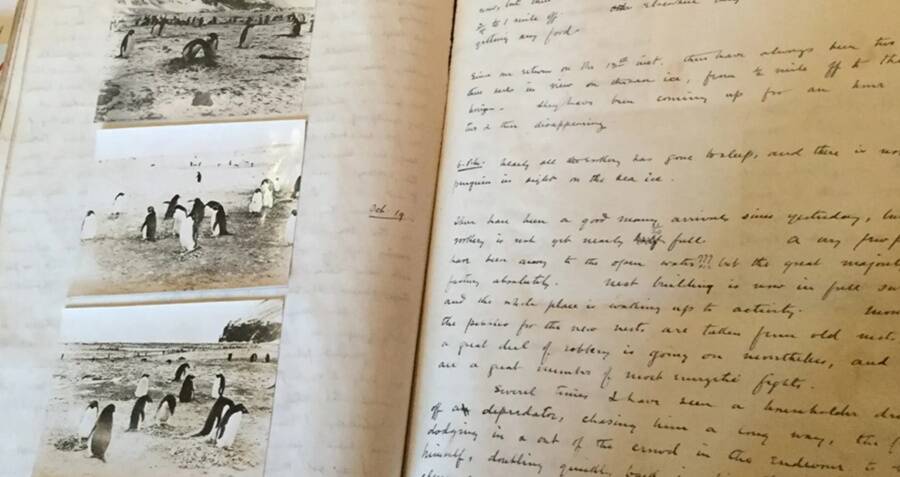 now, but
½ to 1 mile off
getting any food.
Since our return on the 13th inst. there have always been two
three seals in view on the sea ice, from ½ mile off to the
They have been coming up for an hour
two & then disappearing
6 p.m. Nearly all the rookery has gone to sleep, and there is not
penguin in sight on the sea ice.
Oct. 19.
There have been a good many arrivals since yesterday, but
rookery is not yet nearly half full. A very few
have been away to the open water??? but the great majority
fasting absolutely. Nest building is now in full
and the whole place is waking up to activity. Most
the pebbles for the new nests are taken from old nests,
a great deal of robbery is going on nonetheless, and
are a great number of most energetic fights.
Several times I have seen a householder
off a depredator, chasing him a long way, the
dodging in & out of the crowd in the endeavour to
himself, doubling quickly back